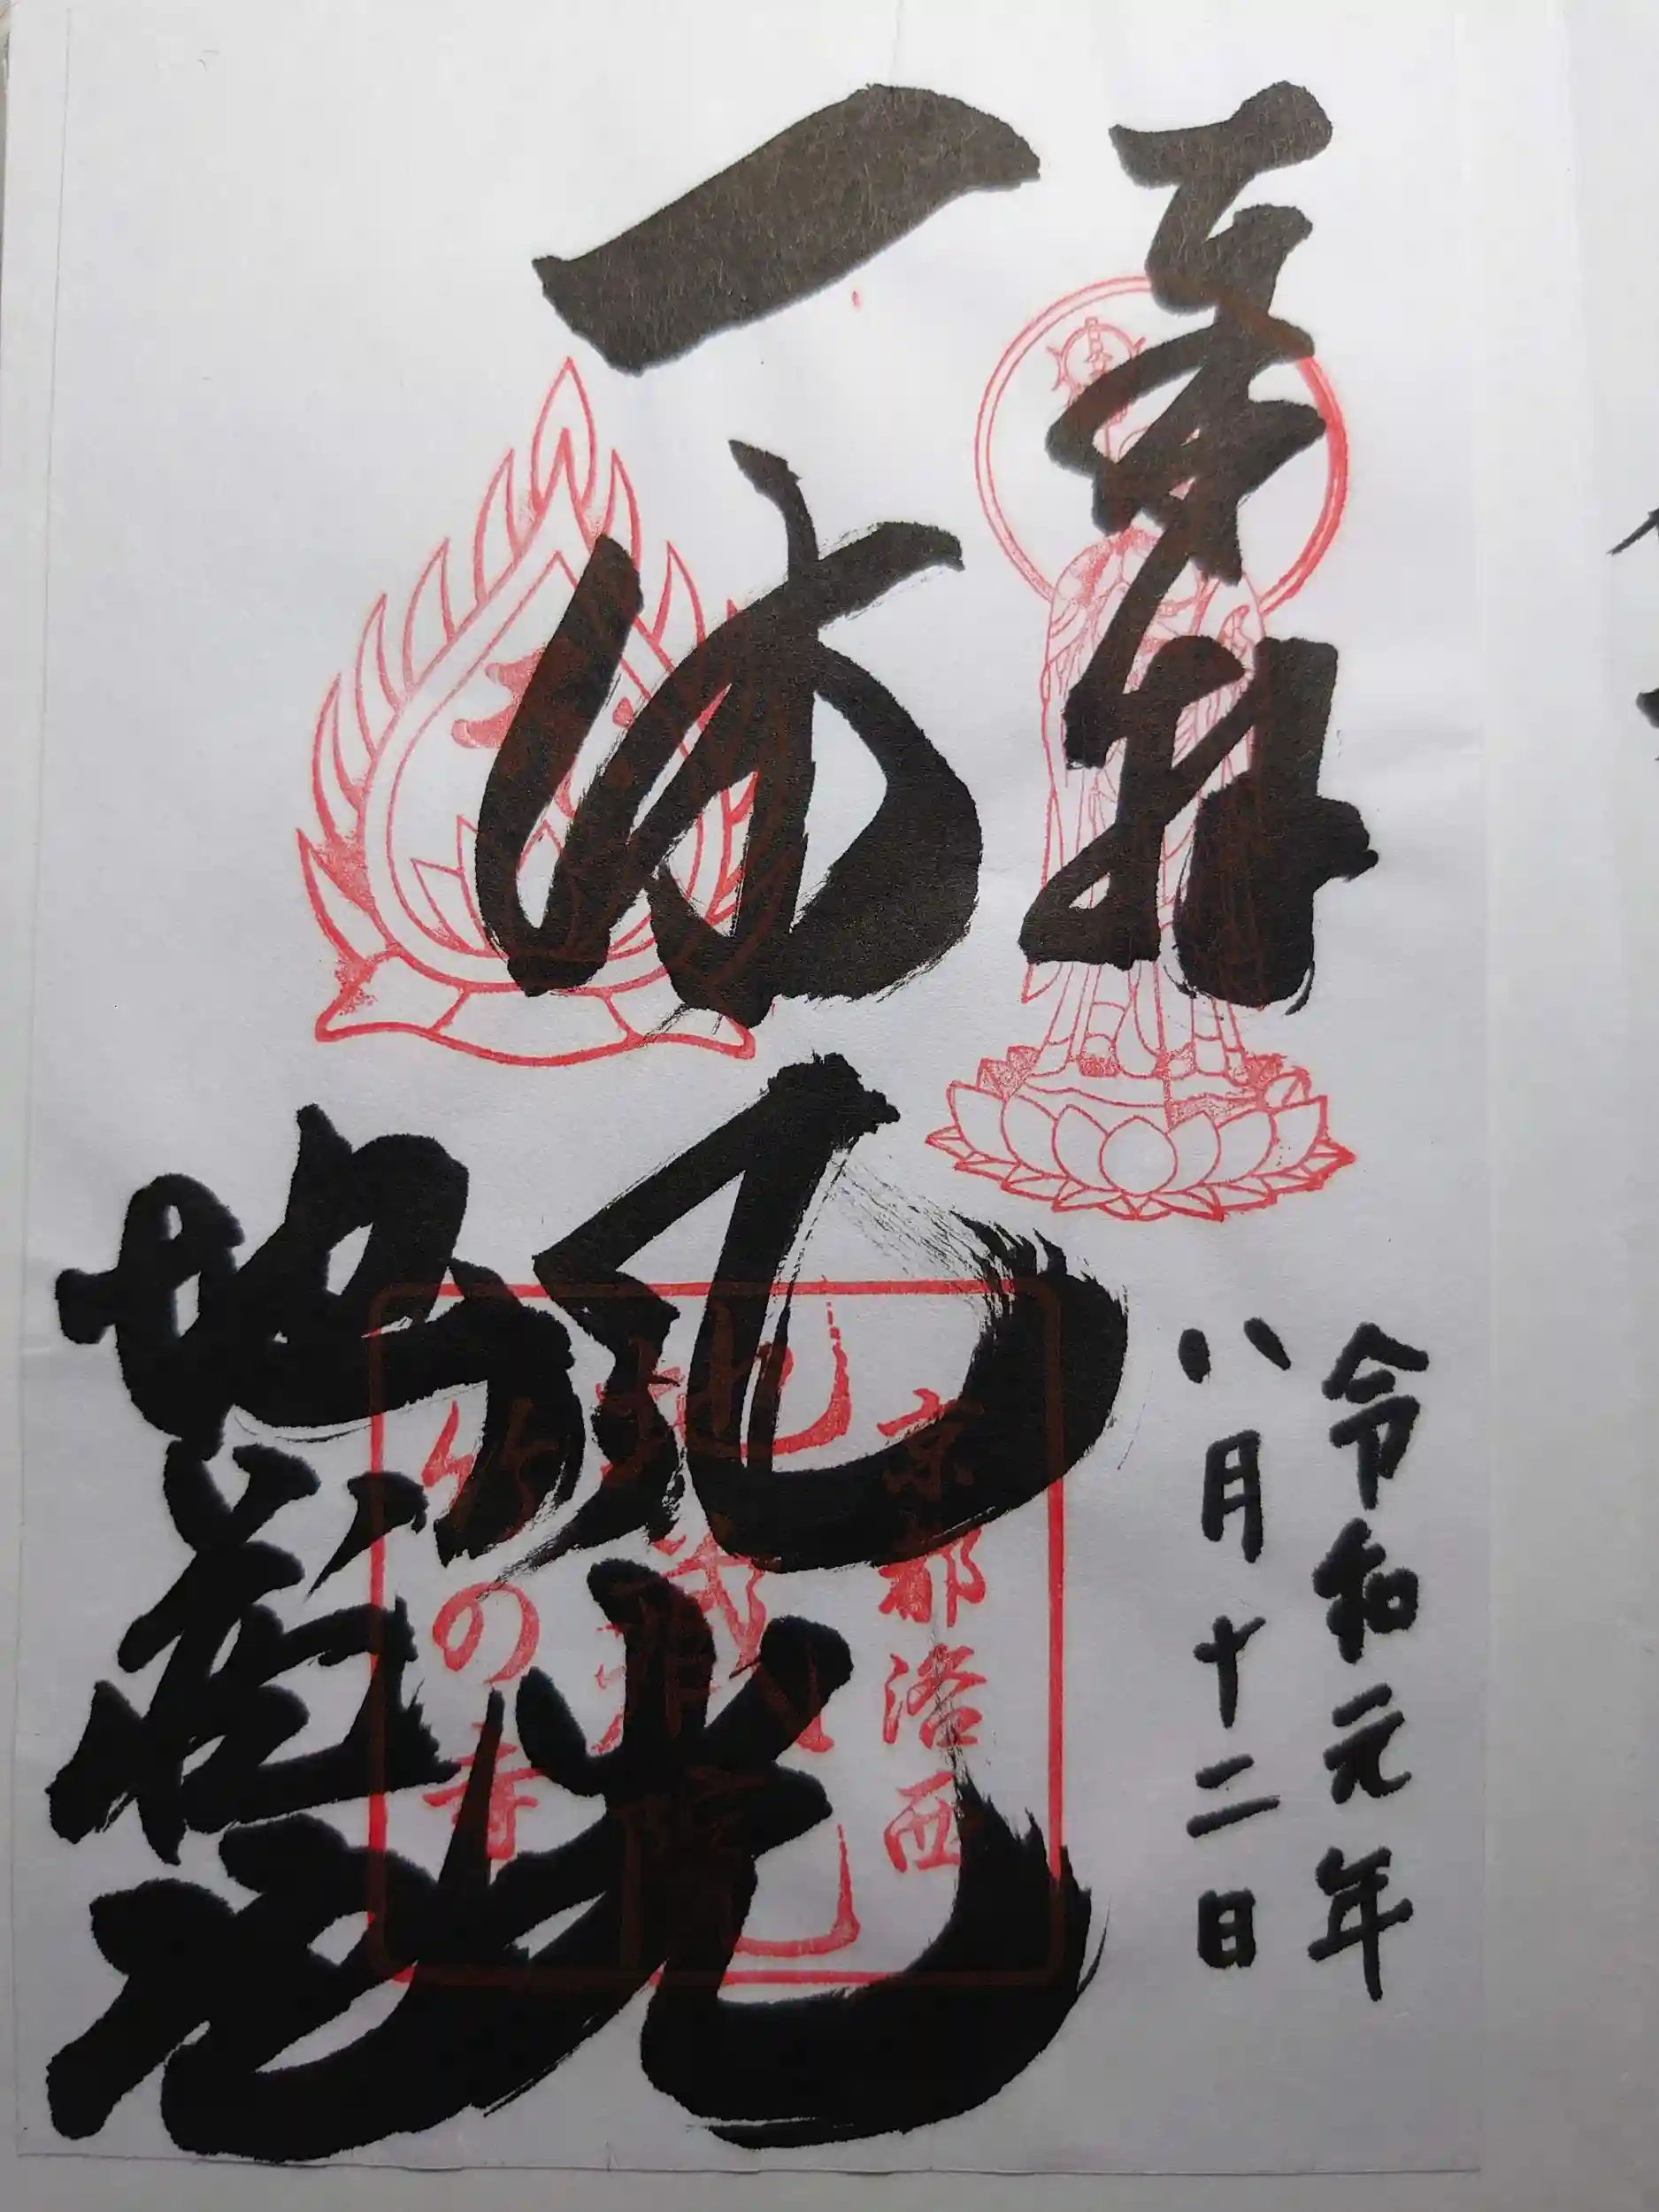 奉拝
令和元年
八月十二日
一休風光
地蔵院
京都洛西
地蔵院
竹の寺